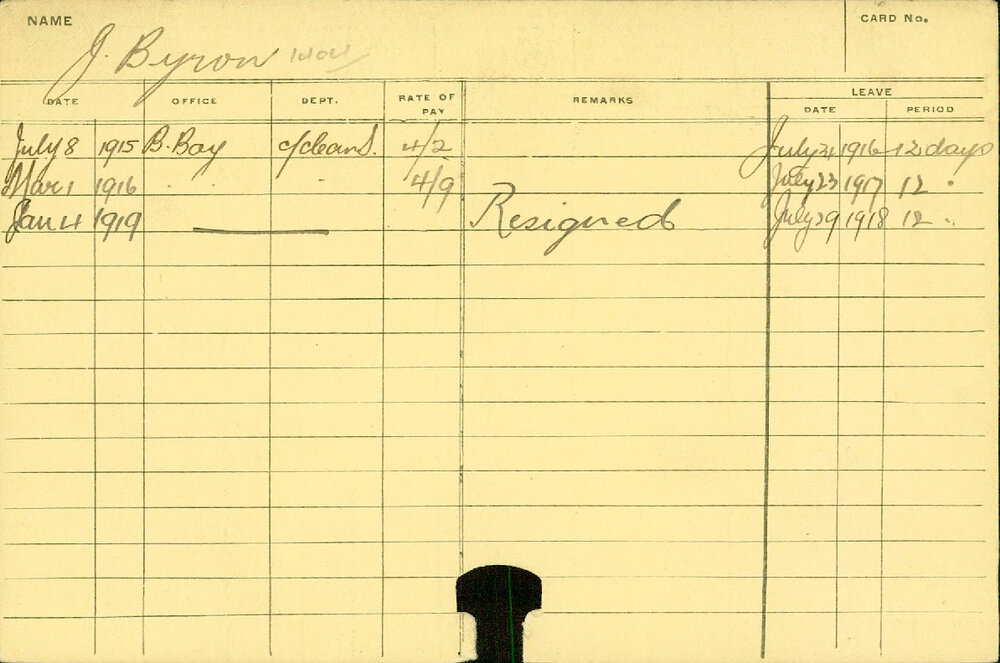 NAME
CARD No.
J. Byron 1404
DATE OFFICE DEPT. RATE OF PAY REMARKS LEAVE
DATE PERIOD
July 8 1915 B. Boy c/cleans. 4/2 July 24 1916 12 days
Mar 1 1916 " " 4/9 July 23 1917 12 "
Jan 4 1919 Resigned July 29 1918 12 "